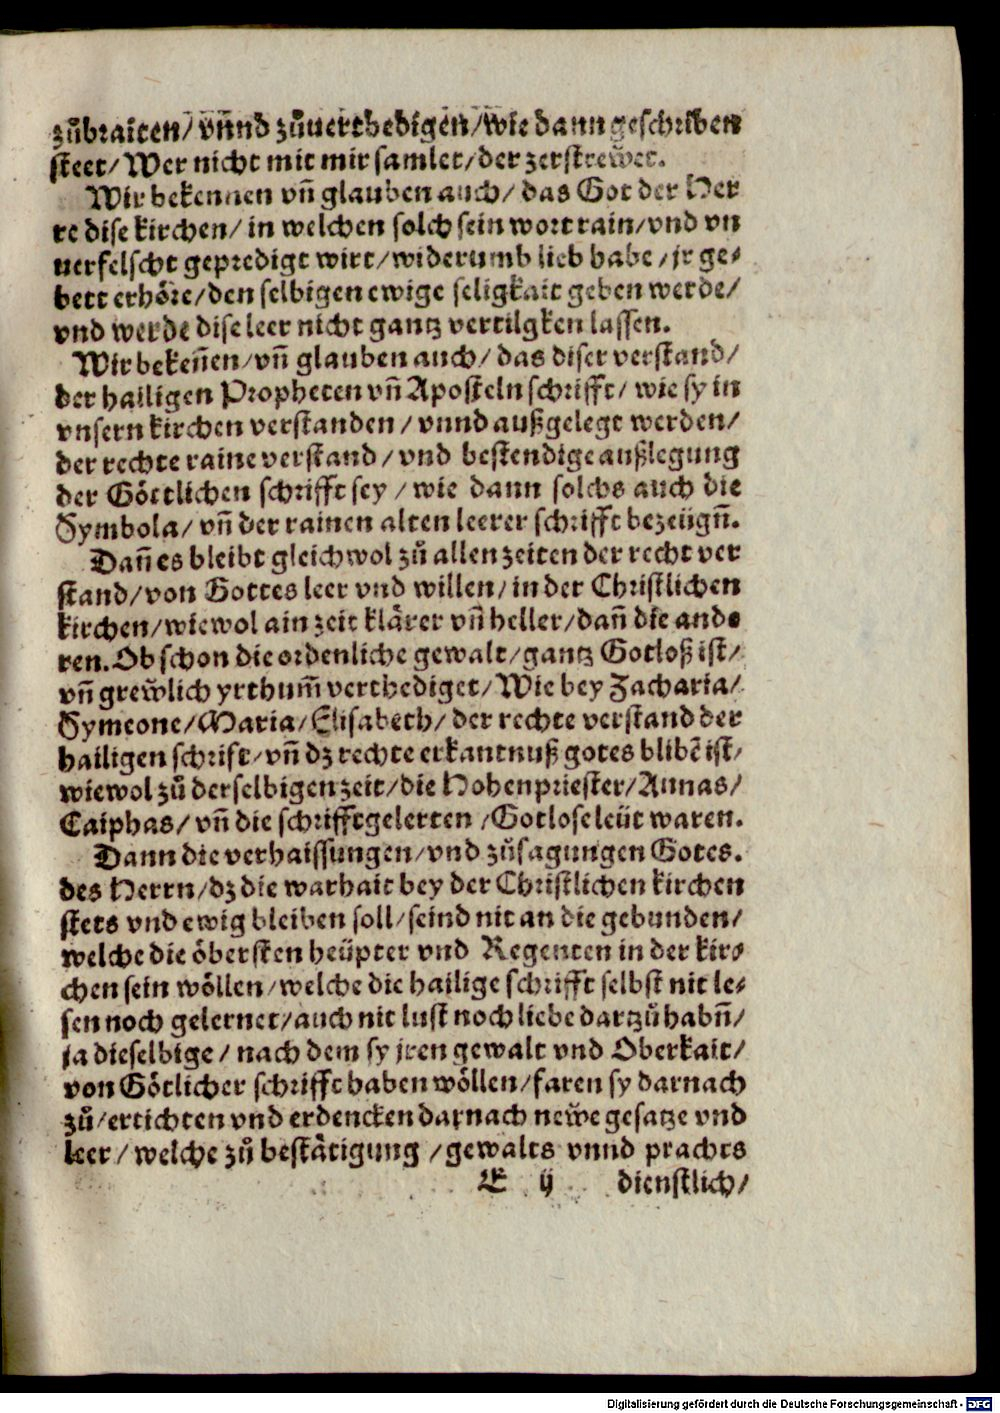 zůbraiten/ vñnd zůuerthedigen/ wie dann geschriben
steet/ Wer nicht mit mir samlet/ der zerstreẅet.
Wir bekennen vñ glauben auch/ das Got der Her
re dise kirchen/ in welchen solch sein wort rain/ vnd vn
uerfelscht gepredigt wirt/ widerumb lieb habe/ jr ge⸗
bett erhöre/ den selbigen ewige seligkait geben werde/
vnd werde dise leer nicht gantz vertilgken lassen.
Wir bekeñen/ vñ glauben auch/ das diser verstand/
der hailigen Propheten vñ Aposteln schrifft/ wie sy in
vnsern kirchen verstanden/ vnnd außgelegt werden/
der rechte raine verstand/ vnd bestendige außlegung
der Göttlichen schrifft sey/ wie dann solchs auch die
Symbola/ vñ der rainen alten leerer schrifft bezeügñ.
Dañ es bleibt gleichwol zů allen zeiten der recht ver
stand/ von Gottes leer vnd willen/ in der Christlichen
kirchen/ wiewol ain zeit klärer vñ heller/ dañ die ande
ren. Ob schon die ordenliche gewalt/ gantz Gotloß ist/
vñ greẅlich yrthum̃ verthediget/ Wie bey Zacharia/
Symeone/ Maria/ Elisabeth/ der rechte verstand der
hailigen schrift/ vñ dz rechte erkantnuß gotes blibẽ ist/
wiewol zů derselbigen zeit/ die Hohenpriester/ Annas/
Caiphas/ vñ die schrifftgelerten/ Gotlose leüt waren.
Dann die verhaissungen/ vnd zůsagungen Gotes.
des Herrn/ dz die warhait bey der Christlichen kirchen
stets vnd ewig bleiben soll/ seind nit an die gebunden/
welche die öbersten heüpter vnd Regenten in der kir⸗
chen sein wöllen/ welche die hailige schrifft selbst nit le⸗
sen noch gelernet/ auch nit lust noch liebe dartzů habñ/
ja dieselbige/ nach dem sy jren gewalt vnd Oberkait/
von Götlicher schrifft haben wöllen/ faren sy darnach
zů/ ertichten vnd erdencken darnach neẅe gesatze vnd
leer/ welche zů bestätigung/ gewalts vnnd prachts
E ij dienstlich/
Digitalisierung gefördert durch die Deutsche Forschungsgemeinschaft - DFG